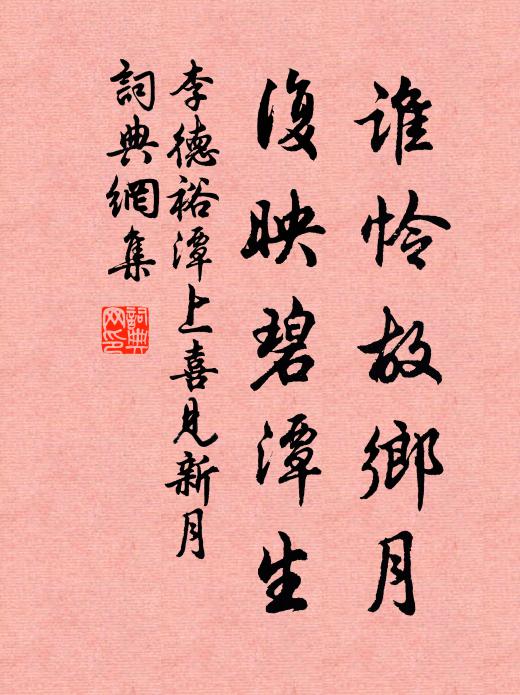 谁怜故鄉月
復映碧潭生
李德裕潭上喜見新月
詞典網集
詞典網印